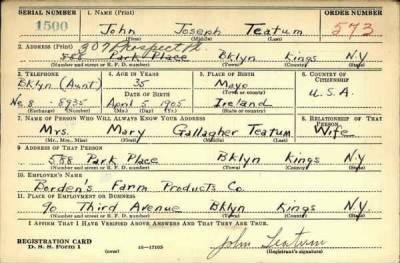 SERIAL NUMBER 1. NAME (Print) ORDER NUMBER
1500 John Joseph Teatum 573
(First) (Middle) (Last)
2. ADDRESS (Print) 307 Prospect Pl.
588 Park Place Bklyn Kings N.Y
(Number and street or R. F. D. number) (Town) (County) (State)
3. TELEPHONE 4. AGE IN YEARS 5. PLACE OF BIRTH 6. COUNTRY OF CITIZENSHIP
Bklyn (Aunt) 35 Mayo
DATE OF BIRTH (Town or county) U.S.A.
No. 8 5935 April 5 1905 Ireland
(Exchange) (Number) (Mo.) (Day) (Yr.) (State or country)
7. NAME OF PERSON WHO WILL ALWAYS KNOW YOUR ADDRESS 8. RELATIONSHIP OF THAT PERSON
Mrs. Mary Gallagher Teatum Wife
(Mr., Mrs., Miss) (First) (Middle) (Last)
9. ADDRESS OF THAT PERSON
588 Park Place Bklyn Kings N.Y
(Number and street or R. F. D. number) (Town) (County) (State)
10. EMPLOYER'S NAME
Borden's Farm Products Co.
11. PLACE OF EMPLOYMENT OR BUSINESS
90 Third Avenue Bklyn Kings N.Y
(Number and street or R. F. D. number) (Town) (County) (State)
I AFFIRM THAT I HAVE VERIFIED ABOVE ANSWERS AND THAT THEY ARE TRUE.
REGISTRATION CARD
D. S. S. Form 1 (over) 16—17105 John Teatum
(Registrant's signature)